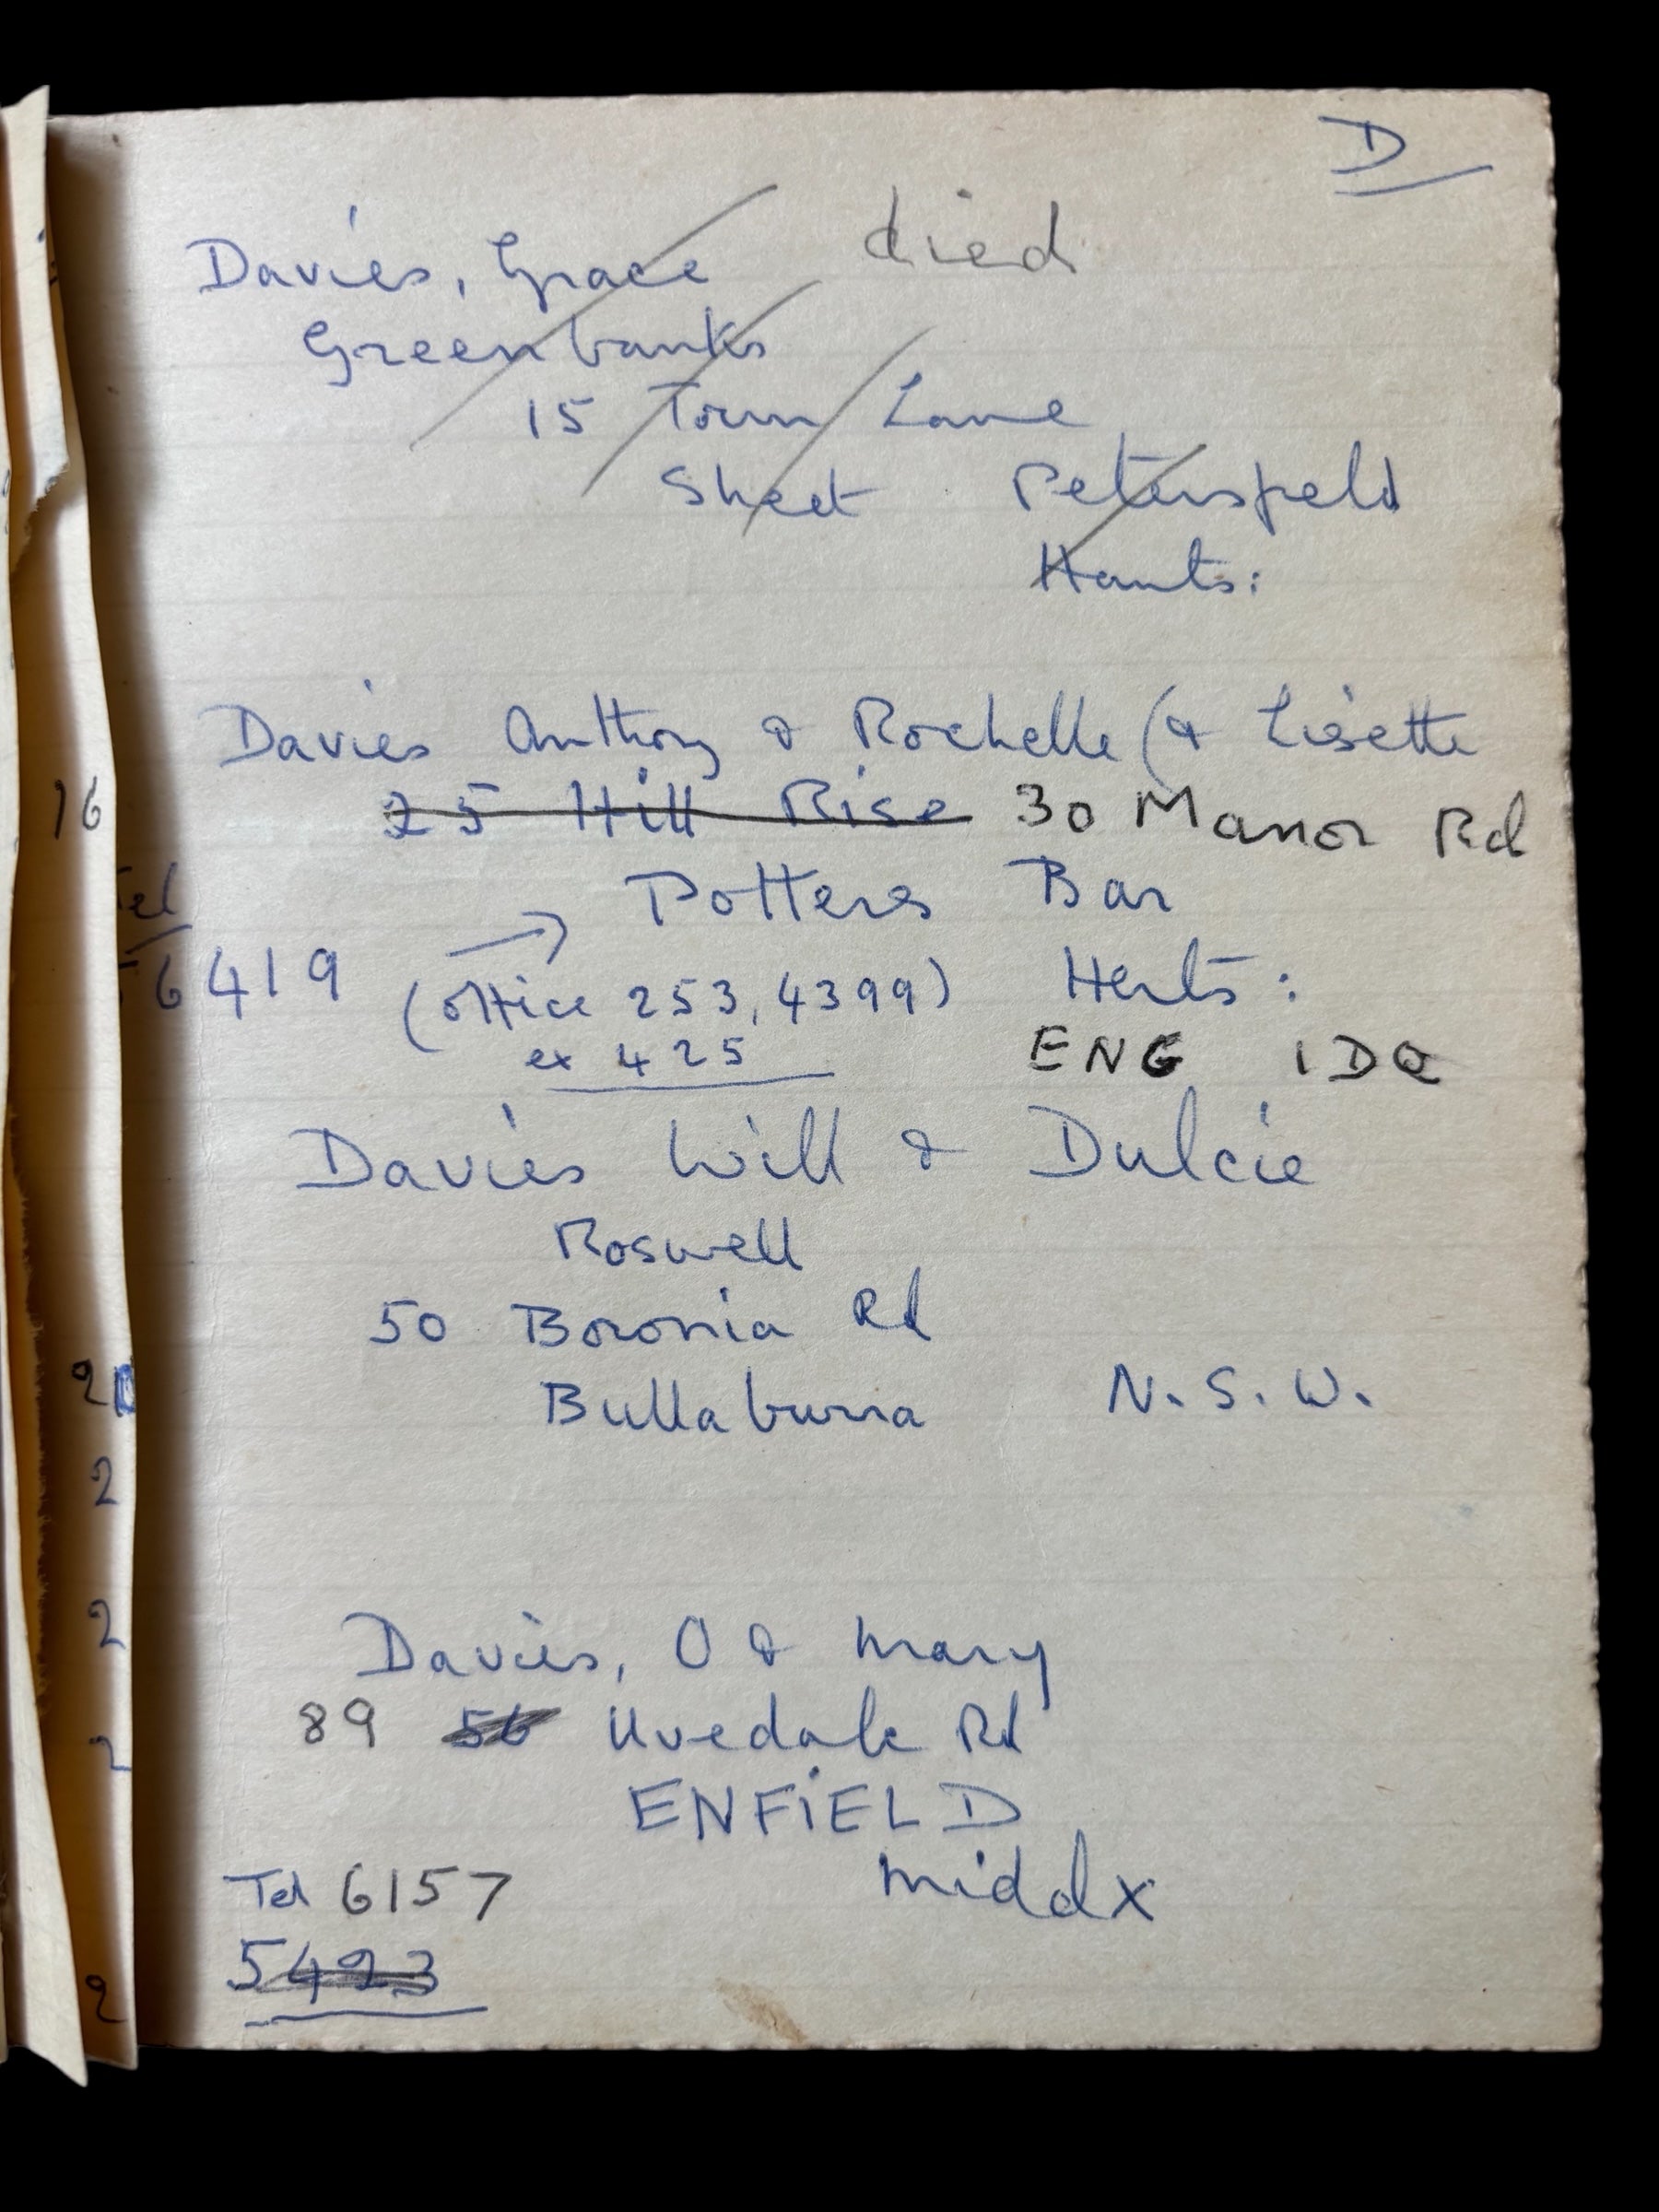 D
Davies, Grace died
Greenbanks
15 Town Lane
Sheet Petersfield
Hants:
Davies Anthony & Rochelle (& Lisette
25 Hill Rise 30 Manor Rd
16
Potters Bar
Tel
6419 (office 253, 4399) Herts:
ex 425 ENG 1DQ
Davies Will & Dulcie
Roswell
50 Boronia Rd
Bullaburra N.S.W.
2
2
Davies, O & Mary
2
89 56 Uvedale Rd
2
ENFiELD
Middx
Tel 6157
5423
2